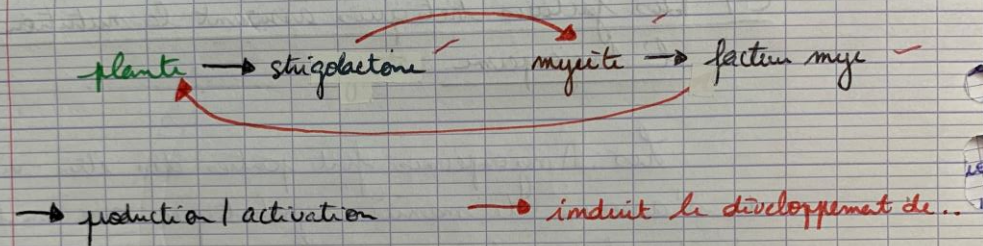 plante → strigolactone mycite → facteur myc
→ production / activation → induit le développement de..